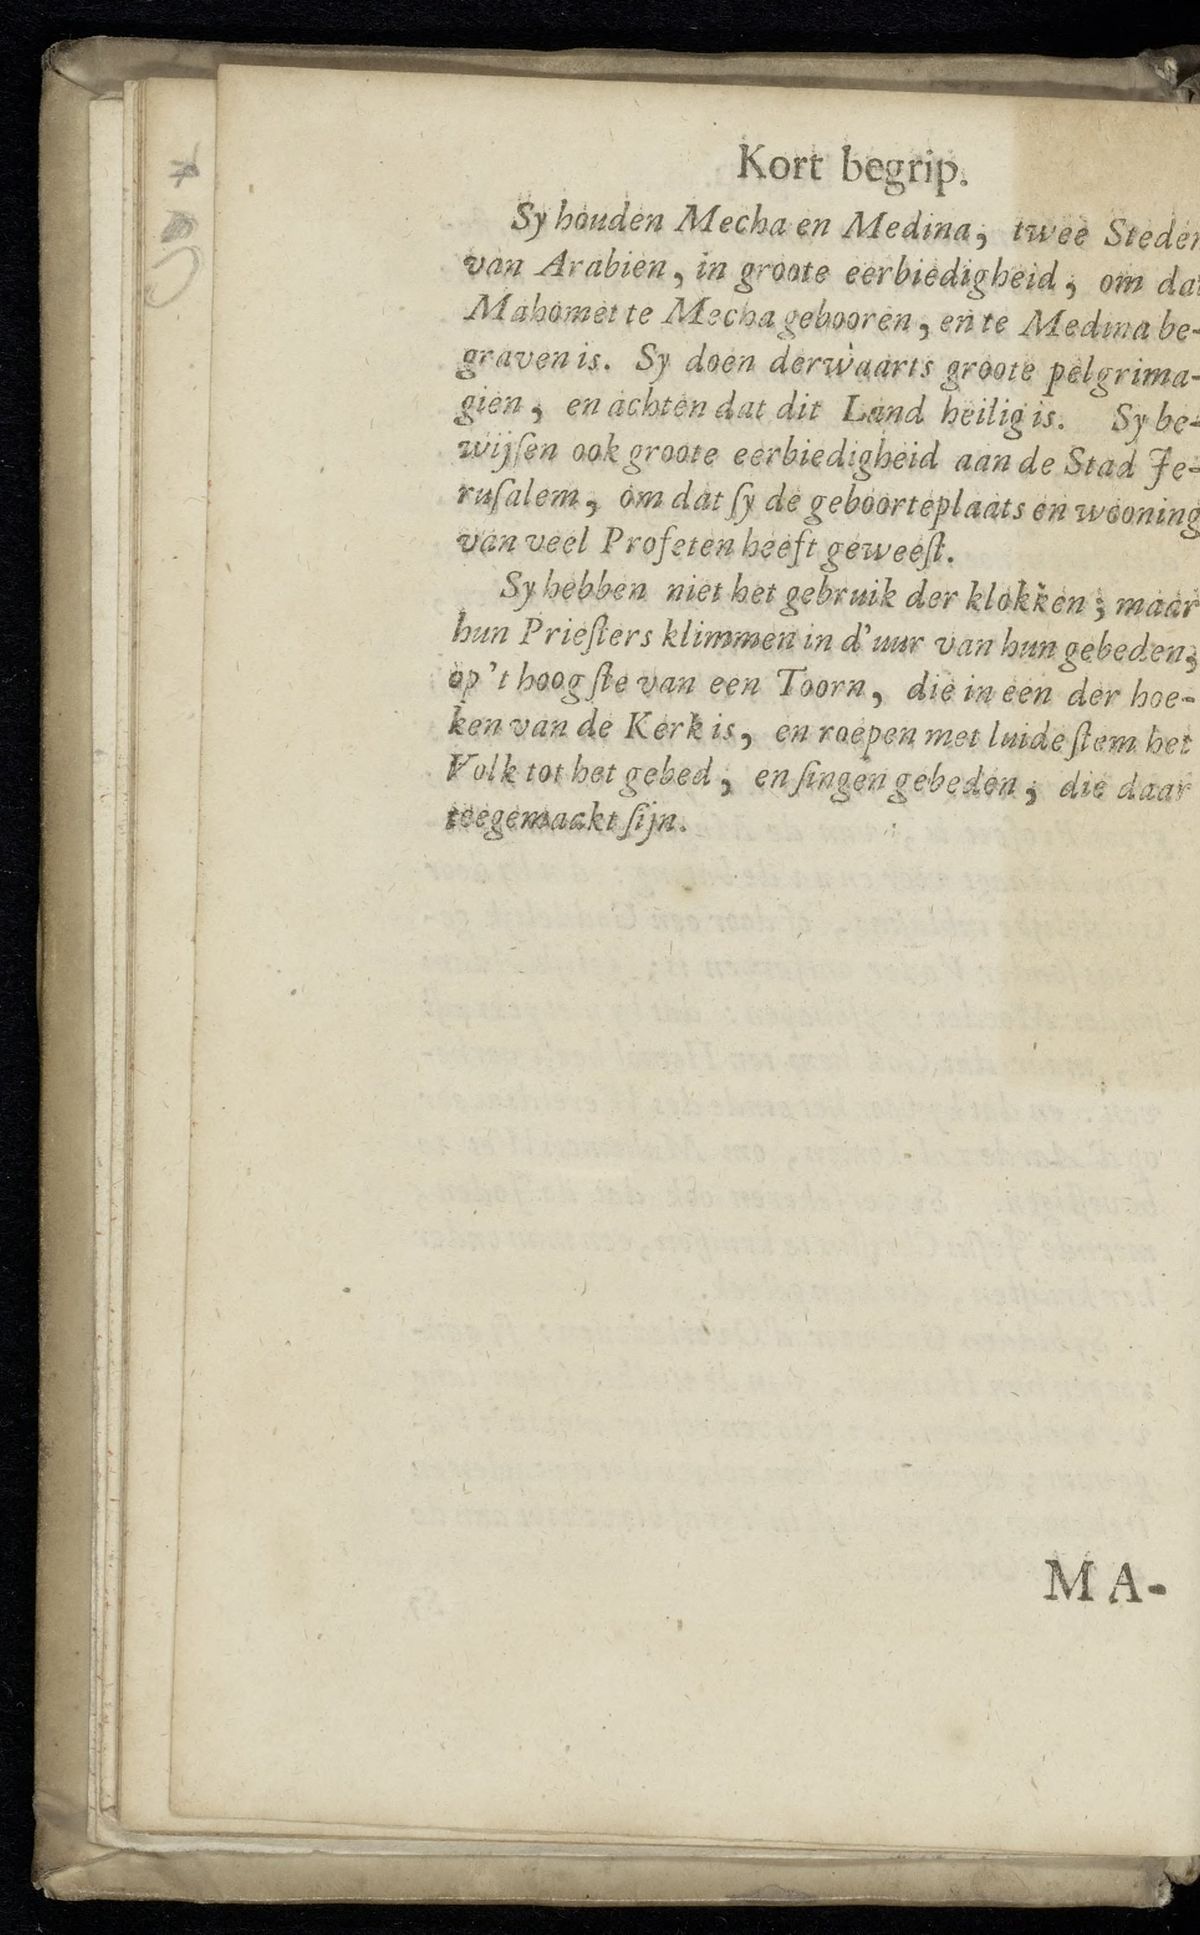 Kort begrip.
Sy houden Mecha en Medina, twee Steden
van Arabien, in groote eerbiedigheid, om dat
Mahomet te Mecha gebooren, en te Medina be-
graven is. Sy doen derwaarts groote pelgrima-
gien, en achten dat dit Land heilig is. Sy be-
wijſen ook groote eerbiedigheid aan de Stad Je-
ruſalem, om dat ſy de geboorteplaats en wooning
van veel Profeten heeft geweeſt.
Sy hebben niet het gebruik der klokken; maar
hun Prieſters klimmen in d'uur van hun gebeden,
op 't hoogſte van een Toorn, die in een der hoe-
ken van de Kerk is, en roepen met luide ſtem het
Volk tot het gebed, en ſingen gebeden, die daar
toegemaakt ſijn.
MA-